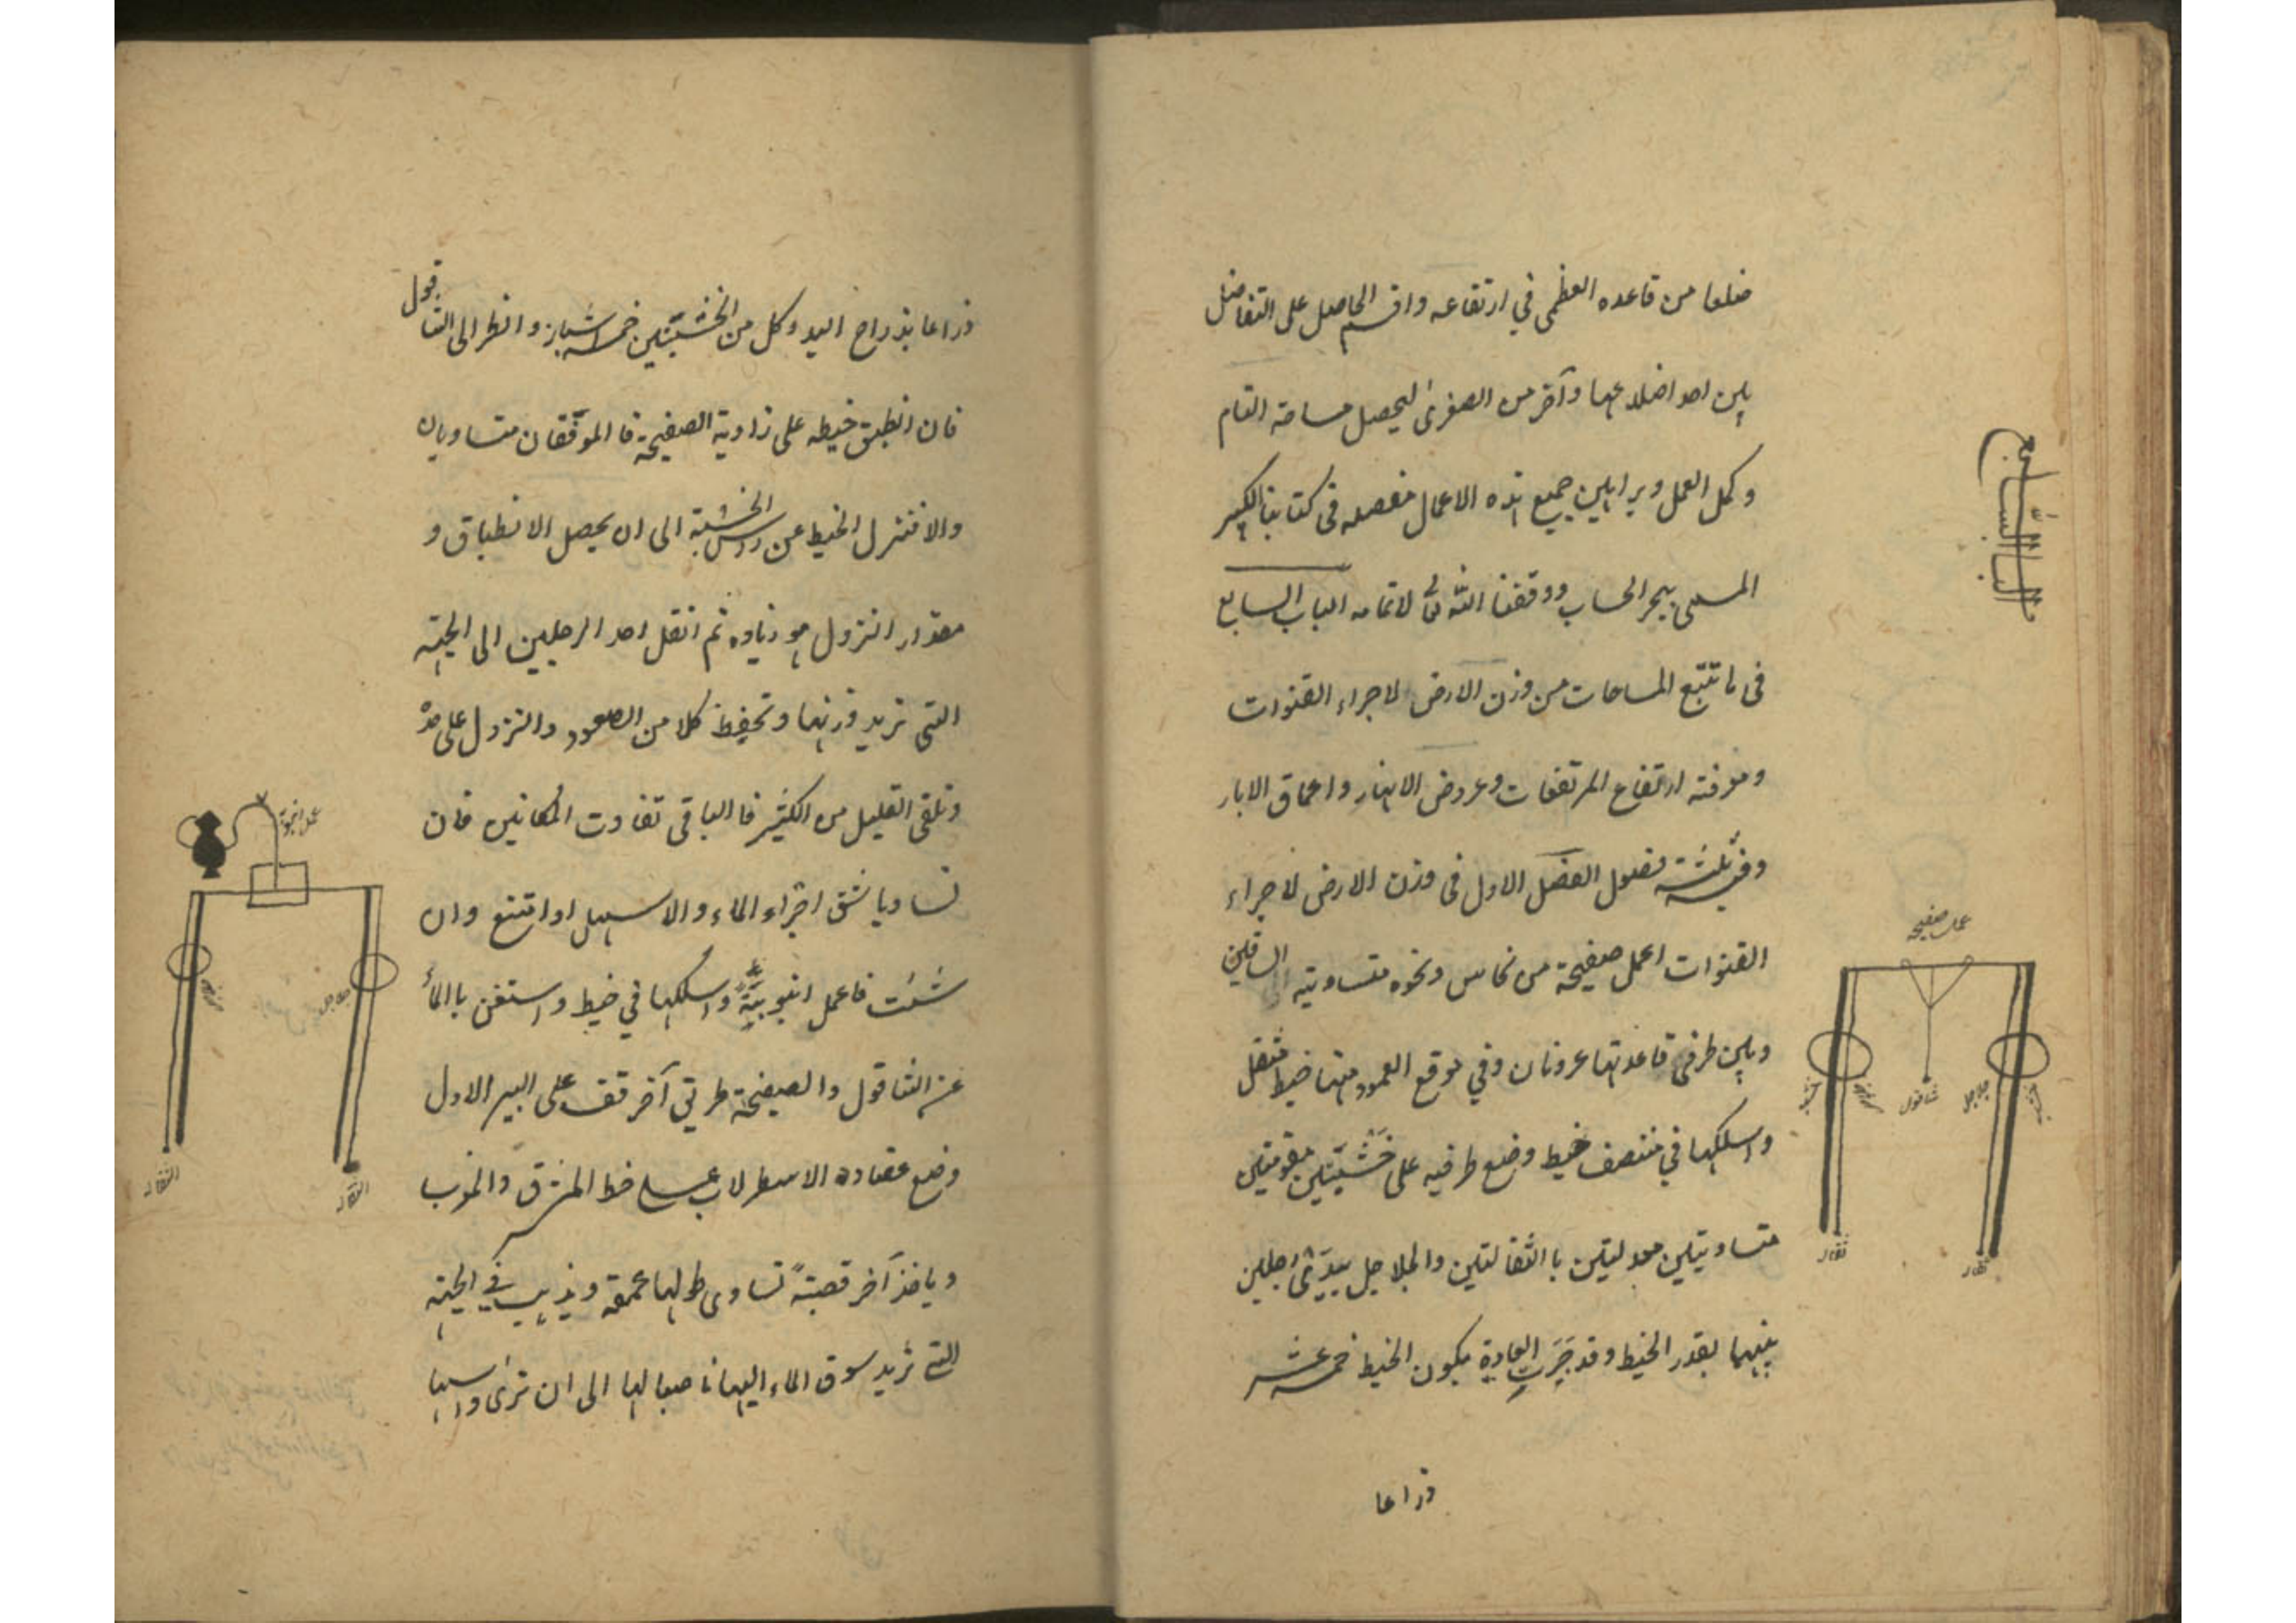 ضلعا من قاعدة العظمى في ارتفاعه واقسم الحاصل على التفاضل
بين احد اضلاعها وآخر من الصغرى ليحصل مساحة التام
وكمل العمل وبراهين جميع هذه الاعمال مفصله فى كتابنا الكبير
المسمى ببحر الحساب ووفقنا الله تعالى لاتمامه الباب السابع
فى ما تتبع المساحات من وزن الارض لاجراء القنوات
ومعرفة ارتفاع المرتفعات وعروض الانهار واعماق الابار
وفيه ثلثة فصول الفصل الاول فى وزن الارض لاجراء
القنوات اعمل صفيحة من نحاس ونحوه متساوية الساقين
وبين طرفى قاعدتها عروتان وفي موقع العمود منها خيط مثقل
واسلكها في منتصف خيط وضع طرفيه على خشبتين مقومتين
متساويتين معدلتين باالثقالتين والجلاجل بيدى رجلين
بينهما بقدر الخيط وقد جرت العادة بكون الخيط خمسة عشر
ذراعا
الباب السابع
عمل صفيحه
شاقول
جلاجل
ثقاله
ذراعا بذراع اليد وكل من الخشبتين خمسة اشبار وانظر الى الشاقول
فان انطبق خيطه على زاوية الصفيحة فا الموقفان متساويان
والا فنزل الخيط عن رؤس الخشبة الى ان يحصل الانطباق و
مقدار النزول هو زياده ثم انقل احد الرجلين الى الجهة
التى تريد وزنها وتحفظ كلا من الصعود والنزول على حدة
وتلقى القليل من الكثير فا الباقى تفاوت المكانين فان
تساويا شق اجراء الماء والا سهل او امتنع وان
شئت فاعمل انبوبة واسلكها في خيط واستغن باالماء
عن الشاقول والصفيحة طريق آخر قف على البير الاول
وضع عضادة الاسطرلاب على خط المشرق والمغرب
وياخذ آخر قصبة تساوى طولها عمقه ويذهب في الجهة
التى تريد سوق الماء اليها ناصبا لها الى ان ترى راسها
عمل انبوبة
جلاجل
الثقاله
الثقاله